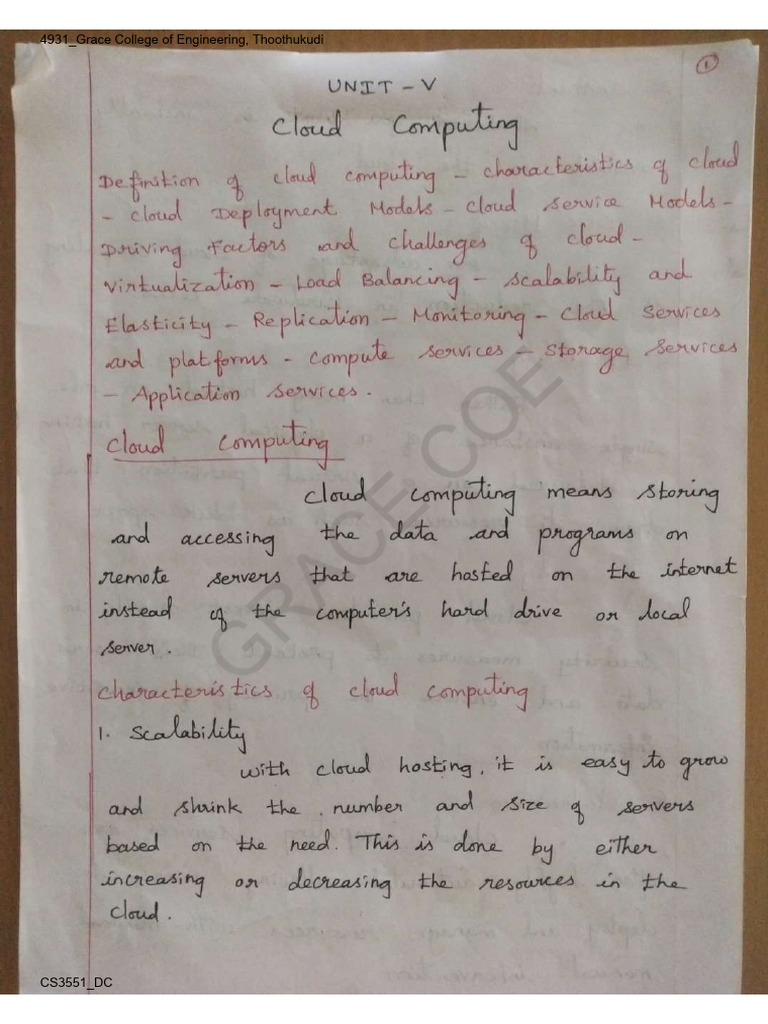 4931_Grace College of Engineering, Thoothukudi
1
UNIT - V
Cloud Computing
Definition of cloud computing - characteristics of cloud
- Cloud Deployment Models - Cloud Service Models -
Driving Factors and challenges of cloud -
Virtualization - Load Balancing - Scalability and
Elasticity - Replication - Monitoring - Cloud Services
and platforms - Compute Services - Storage Services
- Application Services.
Cloud Computing
Cloud computing means storing
and accessing the data and programs on
remote servers that are hosted on the internet
instead of the computer's hard drive or local
server.
Characteristics of cloud computing
1. Scalability
With cloud hosting, it is easy to grow
and shrink the number and size of servers
based on the need. This is done by either
increasing or decreasing the resources in the
cloud.
GRACE COE
CS3551_DC